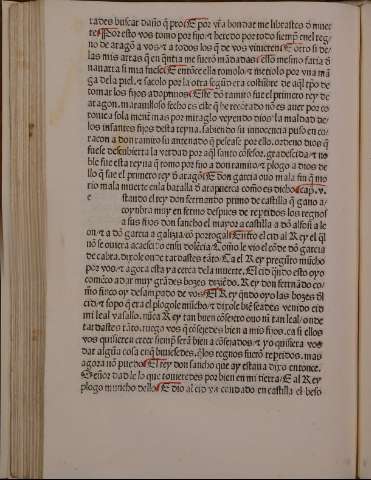 rades buscar daño q̃ pro. E por vr̃a bondat me librastes d̃ muer
te. Por esto vos tomo por fijo. ⁊ heredo por todo siemp̃ en el reg
no de aragõ a vos ⁊ a todos los q̃ de vos vinieren. E otro si de
las mis arras q̃ en q̃ntia me fuerõ mãdadas. ello mesmo faria d̃
nauarra si mia fuese. E entõce ella tomolo ⁊ metiolo por vna mã
ga dela piel. ⁊ sacolo por la otra segũd era costũbre de aq̃l tp̃o de
tomar los fijos adoptiuos. Este dõ ramiro fue el primero rey de
aragon. marauilloso fecho es este q̃ he recõtado nõ es auer por co
ronica sola ment mas por miraglo veyendo dios la maldad de
los infantes fijos desta reyna. sabiendo su innocencia puso en co
racon a don ramiro su antenado q̃ pelease por ello. ordeno dios q̃
fuese descubierta la verdad por aq̃l santo cõfesor. gradescida ⁊ no
ble fue esta reyna q̃ tomo por fijo a don ramiro. ⁊ plogo a dios de
llo q̃ fue el primero rey d̃ aragõ. E don garcia ouo mala fin q̃ mo
rio mala muerte en la batalla d̃ atapuerca como es dicho. cap. v.
e stando el rey don fernando primo de castilla q̃ gano a
coynbra muy enfermo despues de repartidos los regnos
a sus fijos don sancho el mayor a castilla a dõ alfonso a le
on ⁊ a dõ garcia a galizia cõ portogal. Entro el cid al Rey el q̃l
nõ se ouiera acaescido en su dolẽcia. Como le vio el cõde dõ garcia
de cabra. dixole onde tardastes tãto. Ca el Rey pregũto mũcho
por vos. ⁊ agora esta ya cerca dela muerte. El cid q̃ndo esto oyo
comẽco a dar muy grãdes bozes diziẽdo. Rey don fernãdo co
mo finco oy desamparado de vos. El Rey q̃ndo oyo las bozes d̃l
cid. ⁊ sopo q̃ era el plogole mũcho. ⁊ dixole biẽ seades venido cid
mi leal vasallo. nũca Rey tan buen cõsejero ouo nĩ tan leal. onde
tardastes tãto. ruego vos q̃ cõsejedes bien a mis fijos. ca si ellos
vos quisieren creer siemp̃ serã bien a cõsejados. ⁊ yo quisiera vos
dar algũa cosa en q̃ biuiesedes. q̃ los regnos fuerõ repartidos. mas
agora nõ puedo. El rey don sancho que ay estaua dixo entonce.
Señor dad le lo que touieredes por bien en mi tierra. E al Rey
plogo muncho dello. E dio al cid vn condado en castilla el beso